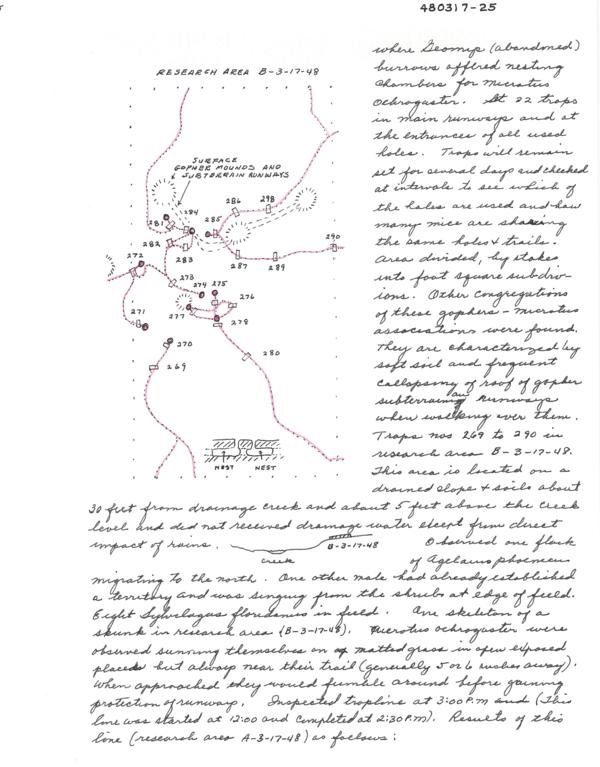 480317-25
RESEARCH AREA B-3-17-48
SURFACE
GOPHER MOUNDS AND
SUBTERRAIN RUNWAYS
284
286
298
281
285
282
283
287
289
290
272
273
274
275
276
277
278
271
270
269
280
NEST
NEST
where Geomys (abandoned)
burrows offered nesting
chambers for Microtus
Ochrogaster. Set 22 traps
in main runways and at
the entrances of all used
holes. Traps will remain
set for several days and checked
at intervals to see which of
the holes are used and how
many mice are sharing
the same holes & trails.
Area divided, by stakes
into foot square subdiv-
ions. Other congregations
of these gophers - microtus
associations were found.
They are characterized by
soft soil and frequent
collapsing of roof of gopher
subterrain runways
when walking over them.
Traps nos 269 to 290 in
research area B-3-17-48.
This area is located on a
drained slope & soils about
30 feet from drainage creek and about 5 feet above the creek
level and did not received dramage water except from direct
impact of rains.
B-3-17-48
creek
Observed one flock
of Agelaius phoenicus
migrating to the north. One other male had already established
a territory and was singing from the shrubs at edge of field.
Eight Sylvilagus floridanus in field. One skeleton of a
skunk in research area (B-3-17-48). Microtus ochrogaster were
observed sunning themselves on matted grass in open exposed
places but always near their trail (generally 5 or 6 inches away).
When approached they would fumble around before gaining
protection of runway. Inspected trapline at 3:00 P.M and (This
line was started at 12:00 and completed at 2:30 P.M). Results of this
line (research area A-3-17-48) as follows: